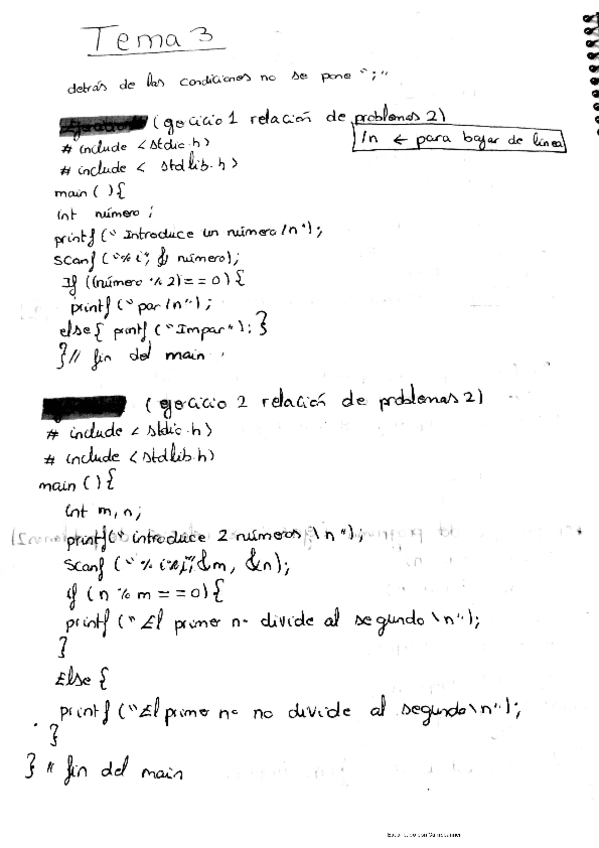 Tema 3
detrás de las condiciones no se pone ";"
(ejercicio 1 relación de problemas 2)
/n ← para bajar de línea
# include <stdio.h>
# include < stdlib.h>
main ( ){
int número ;
printf (" Introduce un número /n");
scanf ("%i", & número);
If ((número % 2) == 0) {
printf ("par /n");
else { printf ("Impar"); }
} // fin del main
(ejercicio 2 relación de problemas 2)
# include < stdio.h>
# include < stdlib.h)
main () {
int m, n;
printf (" introduce 2 números \n");
scanf ("%i%i", &m, &n);
if (n % m == 0) {
printf (" El primer nº divide al segundo \n");
}
Else {
printf ("El primer nº no divide al segundo \n");
}
} // fin del main